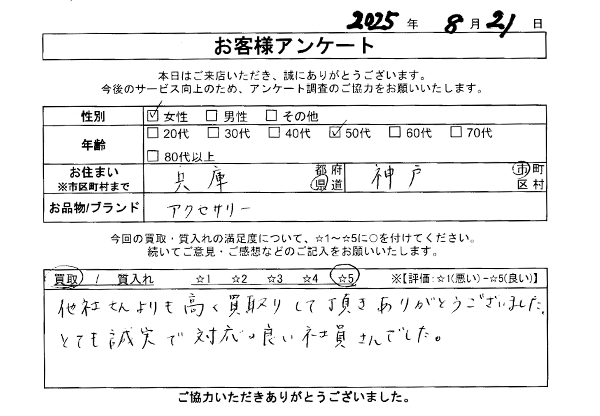 2025 年 8 月 21 日
お客様アンケート
本日はご来店いただき、誠にありがとうございます。
今後のサービス向上のため、アンケート調査のご協力をお願いいたします。
性別 ☑ 女性 □ 男性 □ その他
年齢 □ 20代 □ 30代 □ 40代 ☑ 50代 □ 60代 □ 70代
□ 80代以上
お住まい ※市区町村まで 兵庫 都 府 県 道 神戸 市 町 区 村
お品物/ブランド アクセサリー
今回の買取・質入れの満足度について、☆1～☆5に○を付けてください。
続いてご意見・ご感想などのご記入をお願いいたします。
買取 / 質入れ ☆1 ☆2 ☆3 ☆4 ☆5 ※【評価:☆1(悪い)-☆5(良い)】
他社さんよりも高く買取りして頂きありがとうございました。
とても誠実で対応の良い社員さんでした。
ご協力いただきありがとうございました。